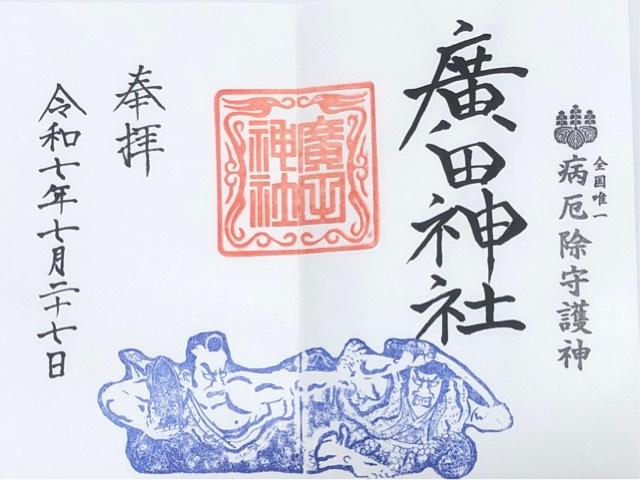 全国唯一
病厄除守護神
廣田神社
廣田
神社
奉拝
令和七年七月二十七日